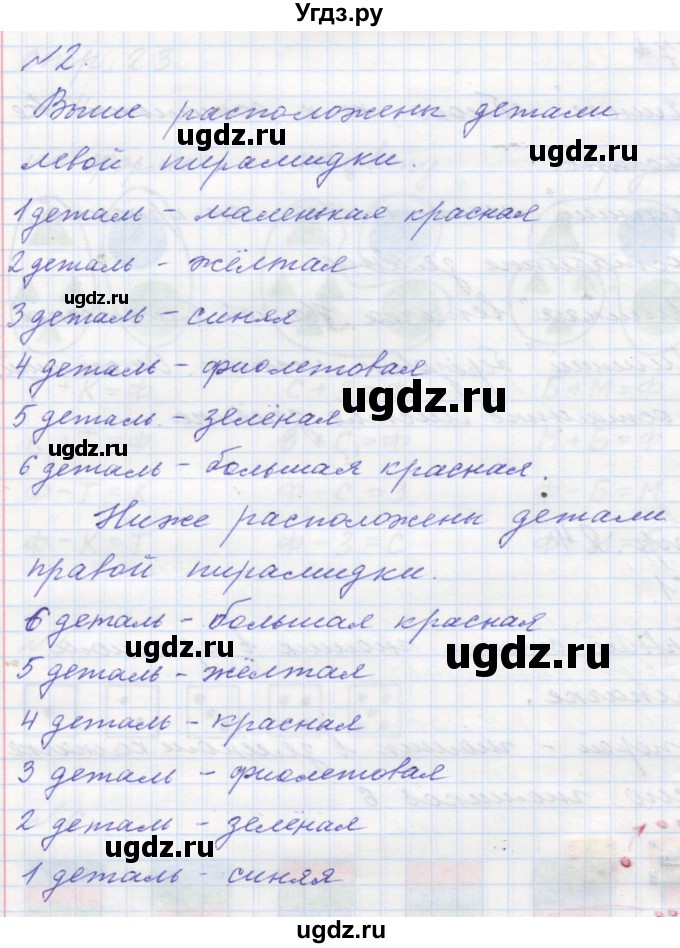 Угдз.ру
№2.
Выше расположены детали
левой пирамидки.
1 деталь - маленькая красная
2 деталь - жёлтая
3 деталь - синяя
4 деталь - фиолетовая
5 деталь - зелёная
6 деталь - большая красная.
Ниже расположены детали
правой пирамидки.
6 деталь - большая красная
5 деталь - жёлтая
4 деталь - красная
3 деталь - фиолетовая
2 деталь - зелёная
1 деталь - синяя
ugdz.ru
ugdz.ru
ugdz.ru
ugdz.ru
ugdz.ru
ugdz.ru
ugdz.ru
ugdz.ru